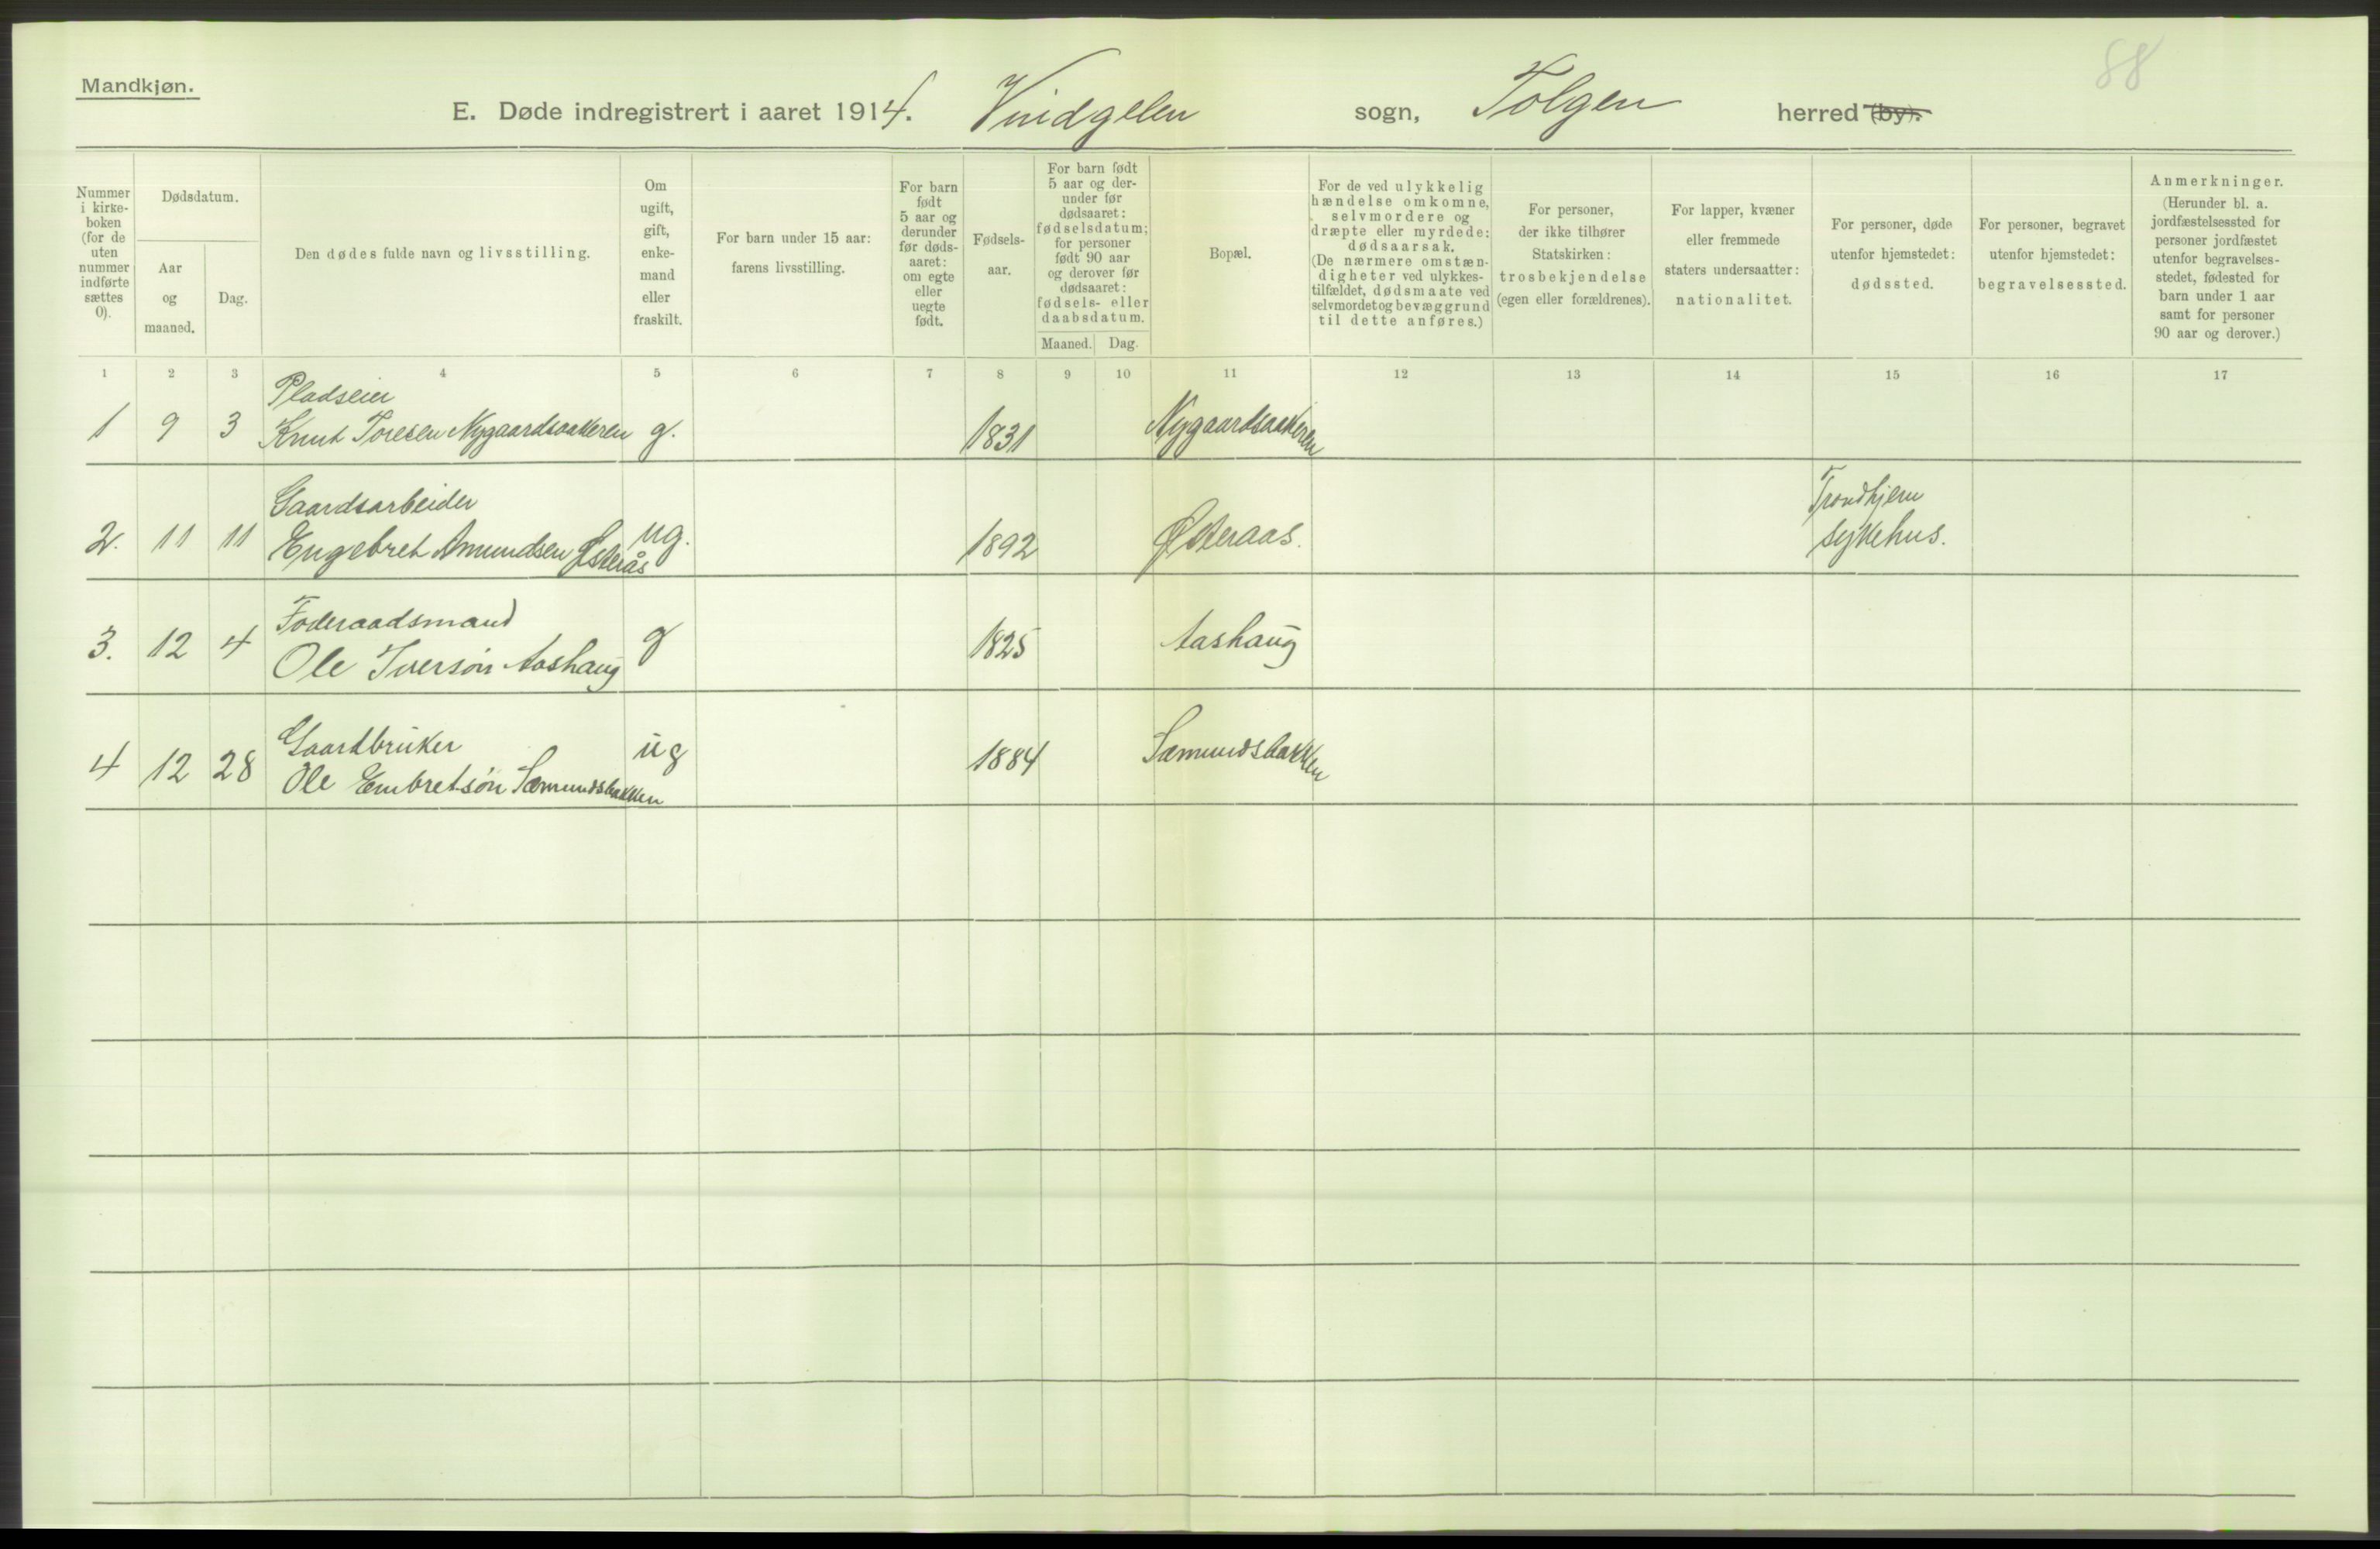 88
Mandkjøn.
E. Døde indregistrert i aaret 1914. Vindgelen sogn, Tolgen herred (by).
Nummer i kirke-boken (for de uten nummer indførte sættes 0).
Dødsdatum.
Aar og maaned.
Dag.
Den dødes fulde navn og livsstilling.
Om ugift, gift, enke-mand eller fraskilt.
For barn under 15 aar: farens livsstilling.
For barn født 5 aar og derunder før døds-aaret: om egte eller uegte født.
Fødsels-aar.
For barn født 5 aar og der-under før dødsaaret: fødselsdatum; for personer født 90 aar og derover før dødsaaret: fødsels- eller daabsdatum.
Maaned. Dag.
Bopæl.
For de ved ulykkelig hændelse omkomne, selvmordere og dræpte eller myrdede: dødsaarsak. (De nærmere omstæn-digheter ved ulykkes-tilfældet, dødsmaate ved selvmordet og bevæggrund til dette anføres.)
For personer, der ikke tilhører Statskirken: trosbekjendelse (egen eller forældrenes).
For lapper, kvæner eller fremmede staters undersaatter: nationalitet.
For personer, døde utenfor hjemstedet: dødssted.
For personer, begravet utenfor hjemstedet: begravelsessted.
Anmerkninger. (Herunder bl. a. jordfæstelsessted for personer jordfæstet utenfor begravelses-stedet, fødested for barn under 1 aar samt for personer 90 aar og derover.)
1 2 3 4 5 6 7 8 9 10 11 12 13 14 15 16 17
Pladseier
1 9 3 Knut Toresen Nygaardsaakeren g. 1831 Nygaardsaakeren
Gaardsarbeider Trondhjem
2. 11 11 Engebret Amundsen Østerås ug. 1892 Østeraas. sykehus.
Føderaadsmand
3. 12 4 Ole Iversøn Aashaug g 1825 Aashaug
Gaardbruker
4 12 28 Ole Embretsøn Sæmundsbakken ug 1884 Sæmundsbakken